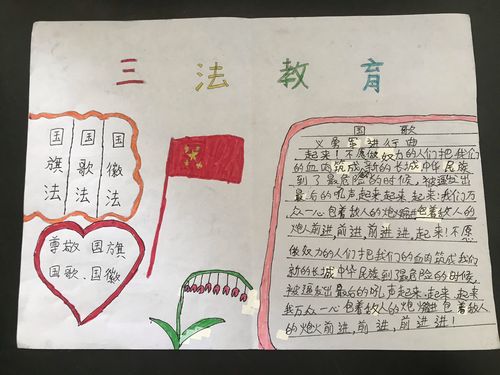 三法教育
国旗法
国歌法
国徽法
尊敬国旗
国歌.国徽
国歌
义勇军进行曲
起来!不愿做奴力的人们把我们
的血肉筑成新的长城中华民族
到了最危险的时候,被逼发出
最后的吼声起来起来起来!我们万
众一心包着敌人的炮火包着敌人的
炮火前进,前进,前进,进,起来!不愿
做奴力的人们把我们的血肉筑成我们
新的长城中华民族到强危险的时候,
被逼发出最后的吼声起来.起来.起来
我万众一心包着敌人的炮火包着敌人
的炮火前进,前进,前进进!